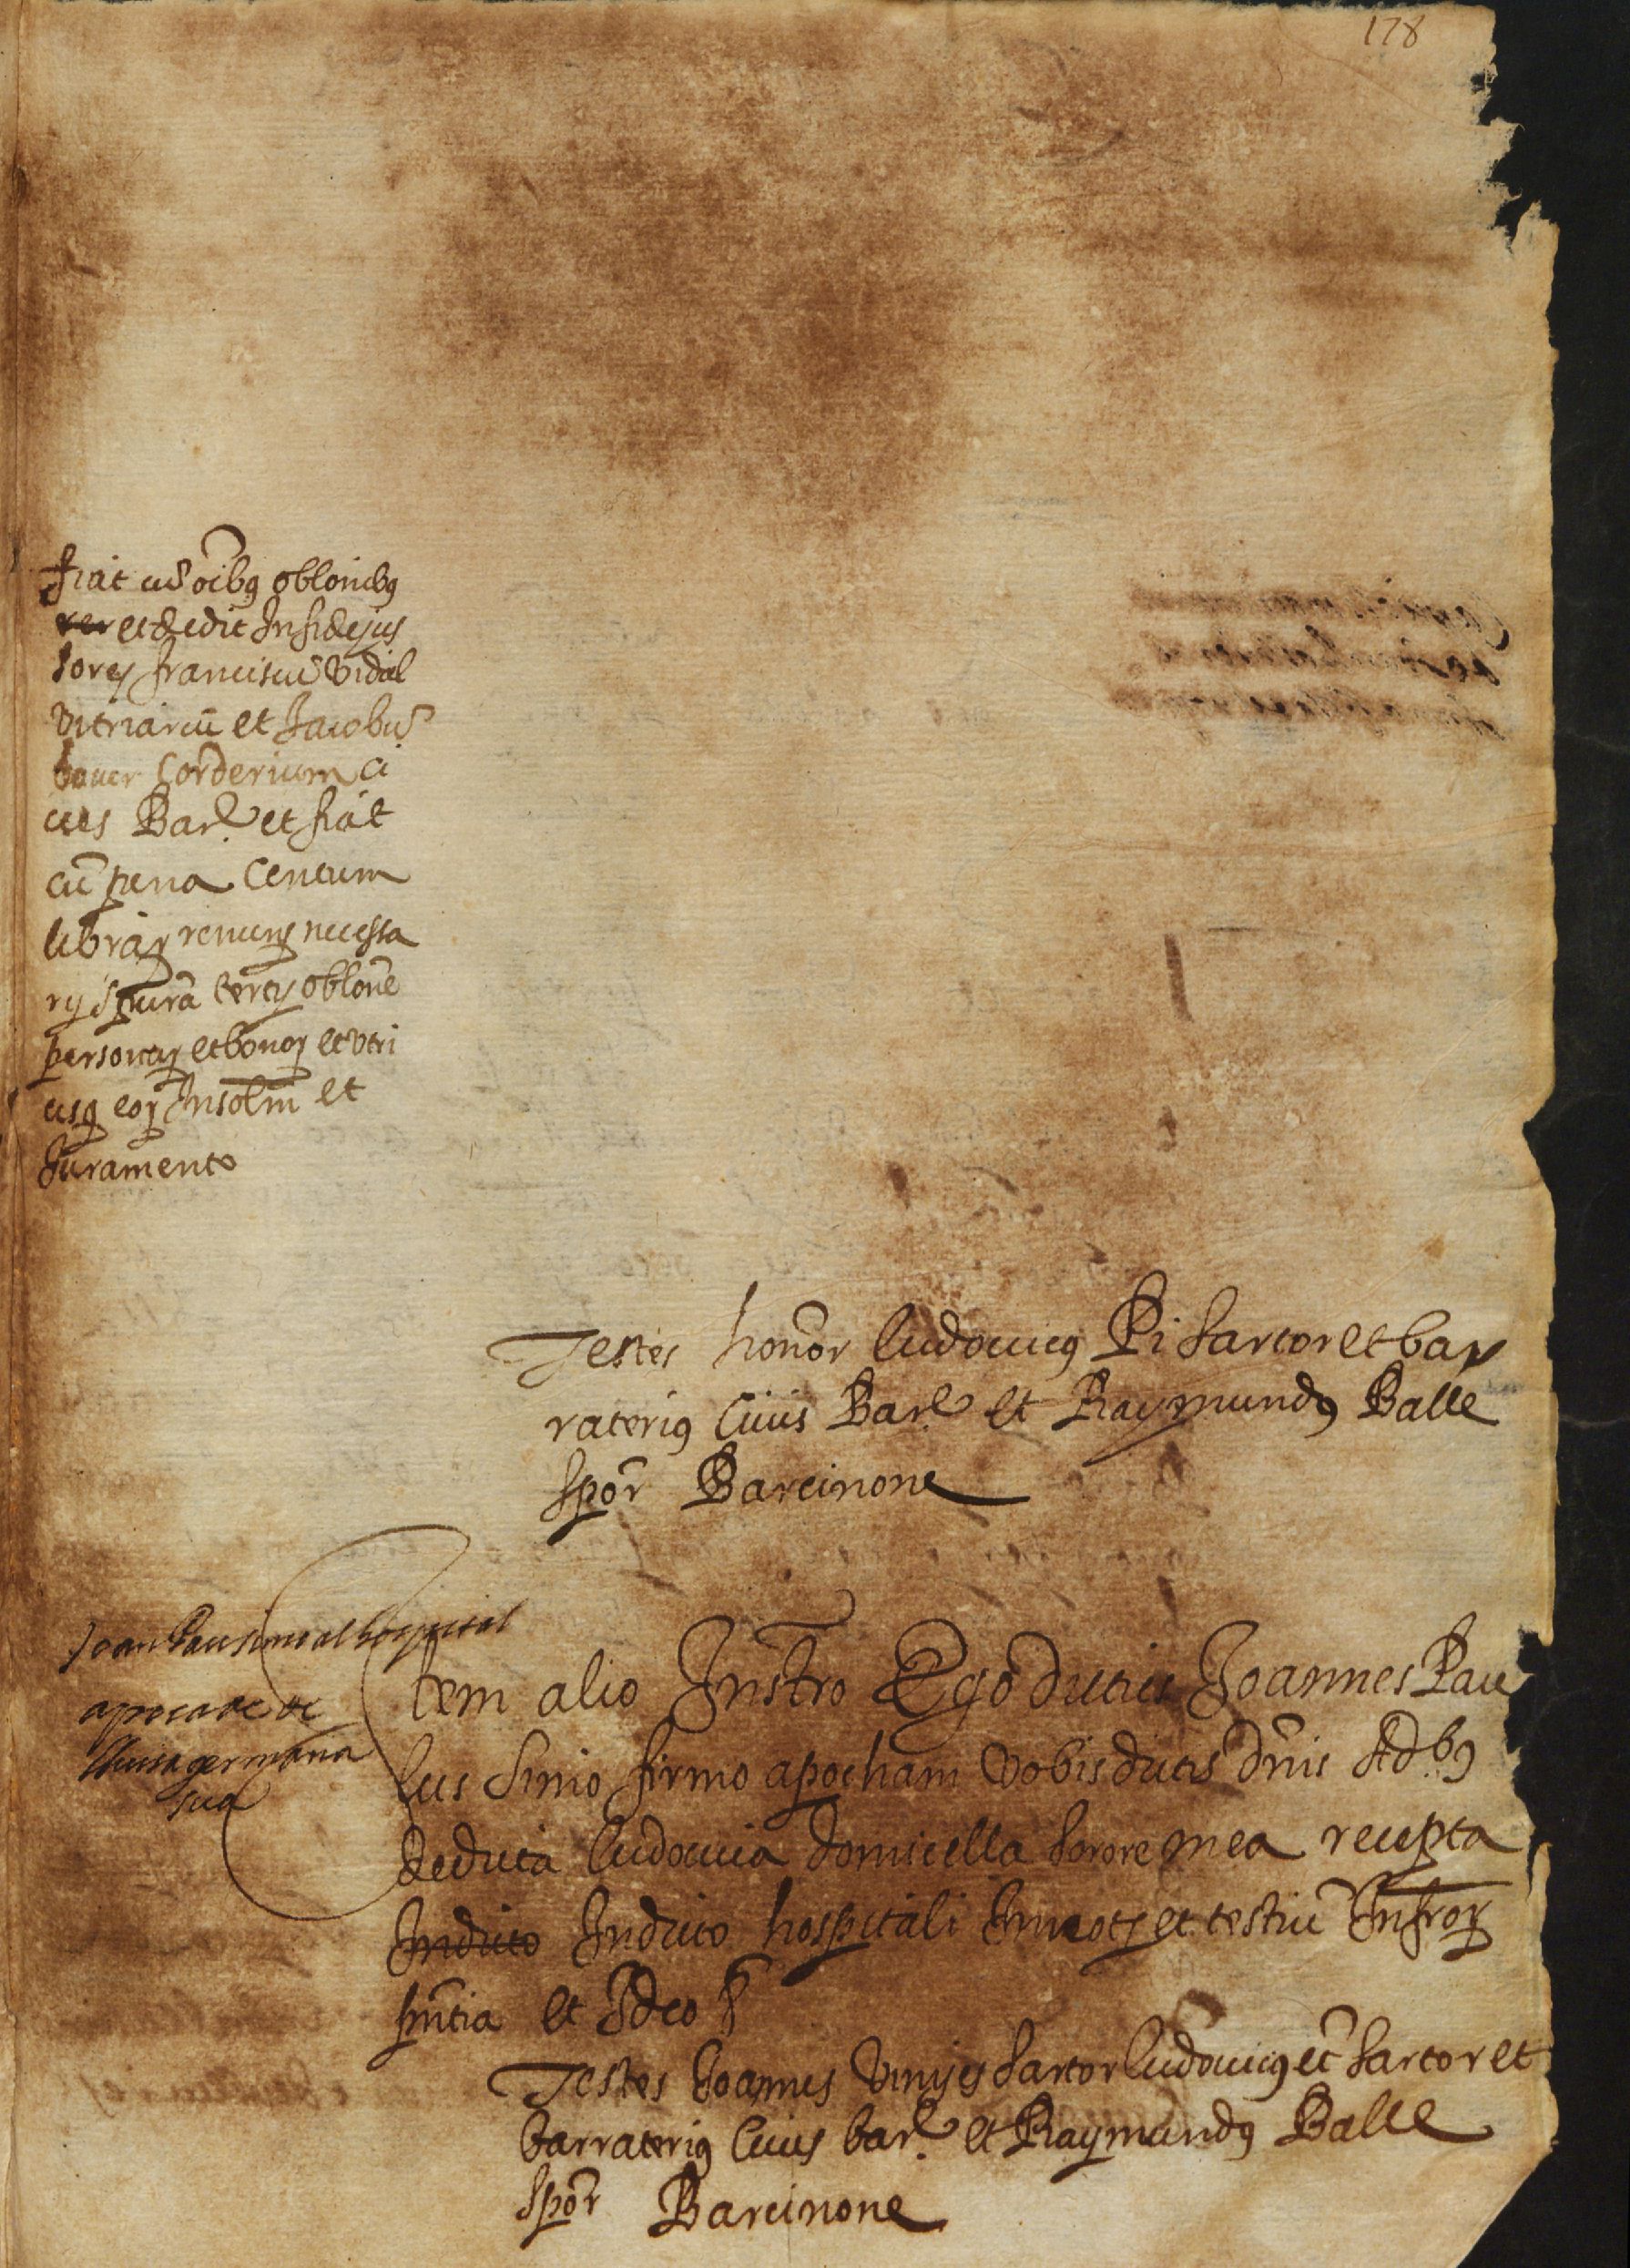 178
fiat cū oibq oblonibq
rer et dedit In fideius
sores franciscū vidal
vitriariū et Jacobū
corderium ci
ues Barᵉ et fiat
cū pena Centum
librar renuns necessa
rijs
personar et bonor et vtri
usq eor Insolm et
Juramento
Testes honor ludouicq Pi sartor et bar
rateriq Ciuis Barᵉ et Raymundq Balle
spōr Barcinone
Joan Pau simo al hospital
apoca de
lluisa germana
sua
Item alio Instro Ego dictus Joannes Pau
lus Simo firmo apocham vobis dictis dnis Adbq
de dicta ludouica domicella sorore mea recepta
Indicto Indicto hospitali In not et testiū Infror
pntia et Ideo
Testes Joannes vinyes sartor ludouicq Pi sartor et
barrateriq Ciuis barᵉ et Raymundq Balle
spōr Barcinone